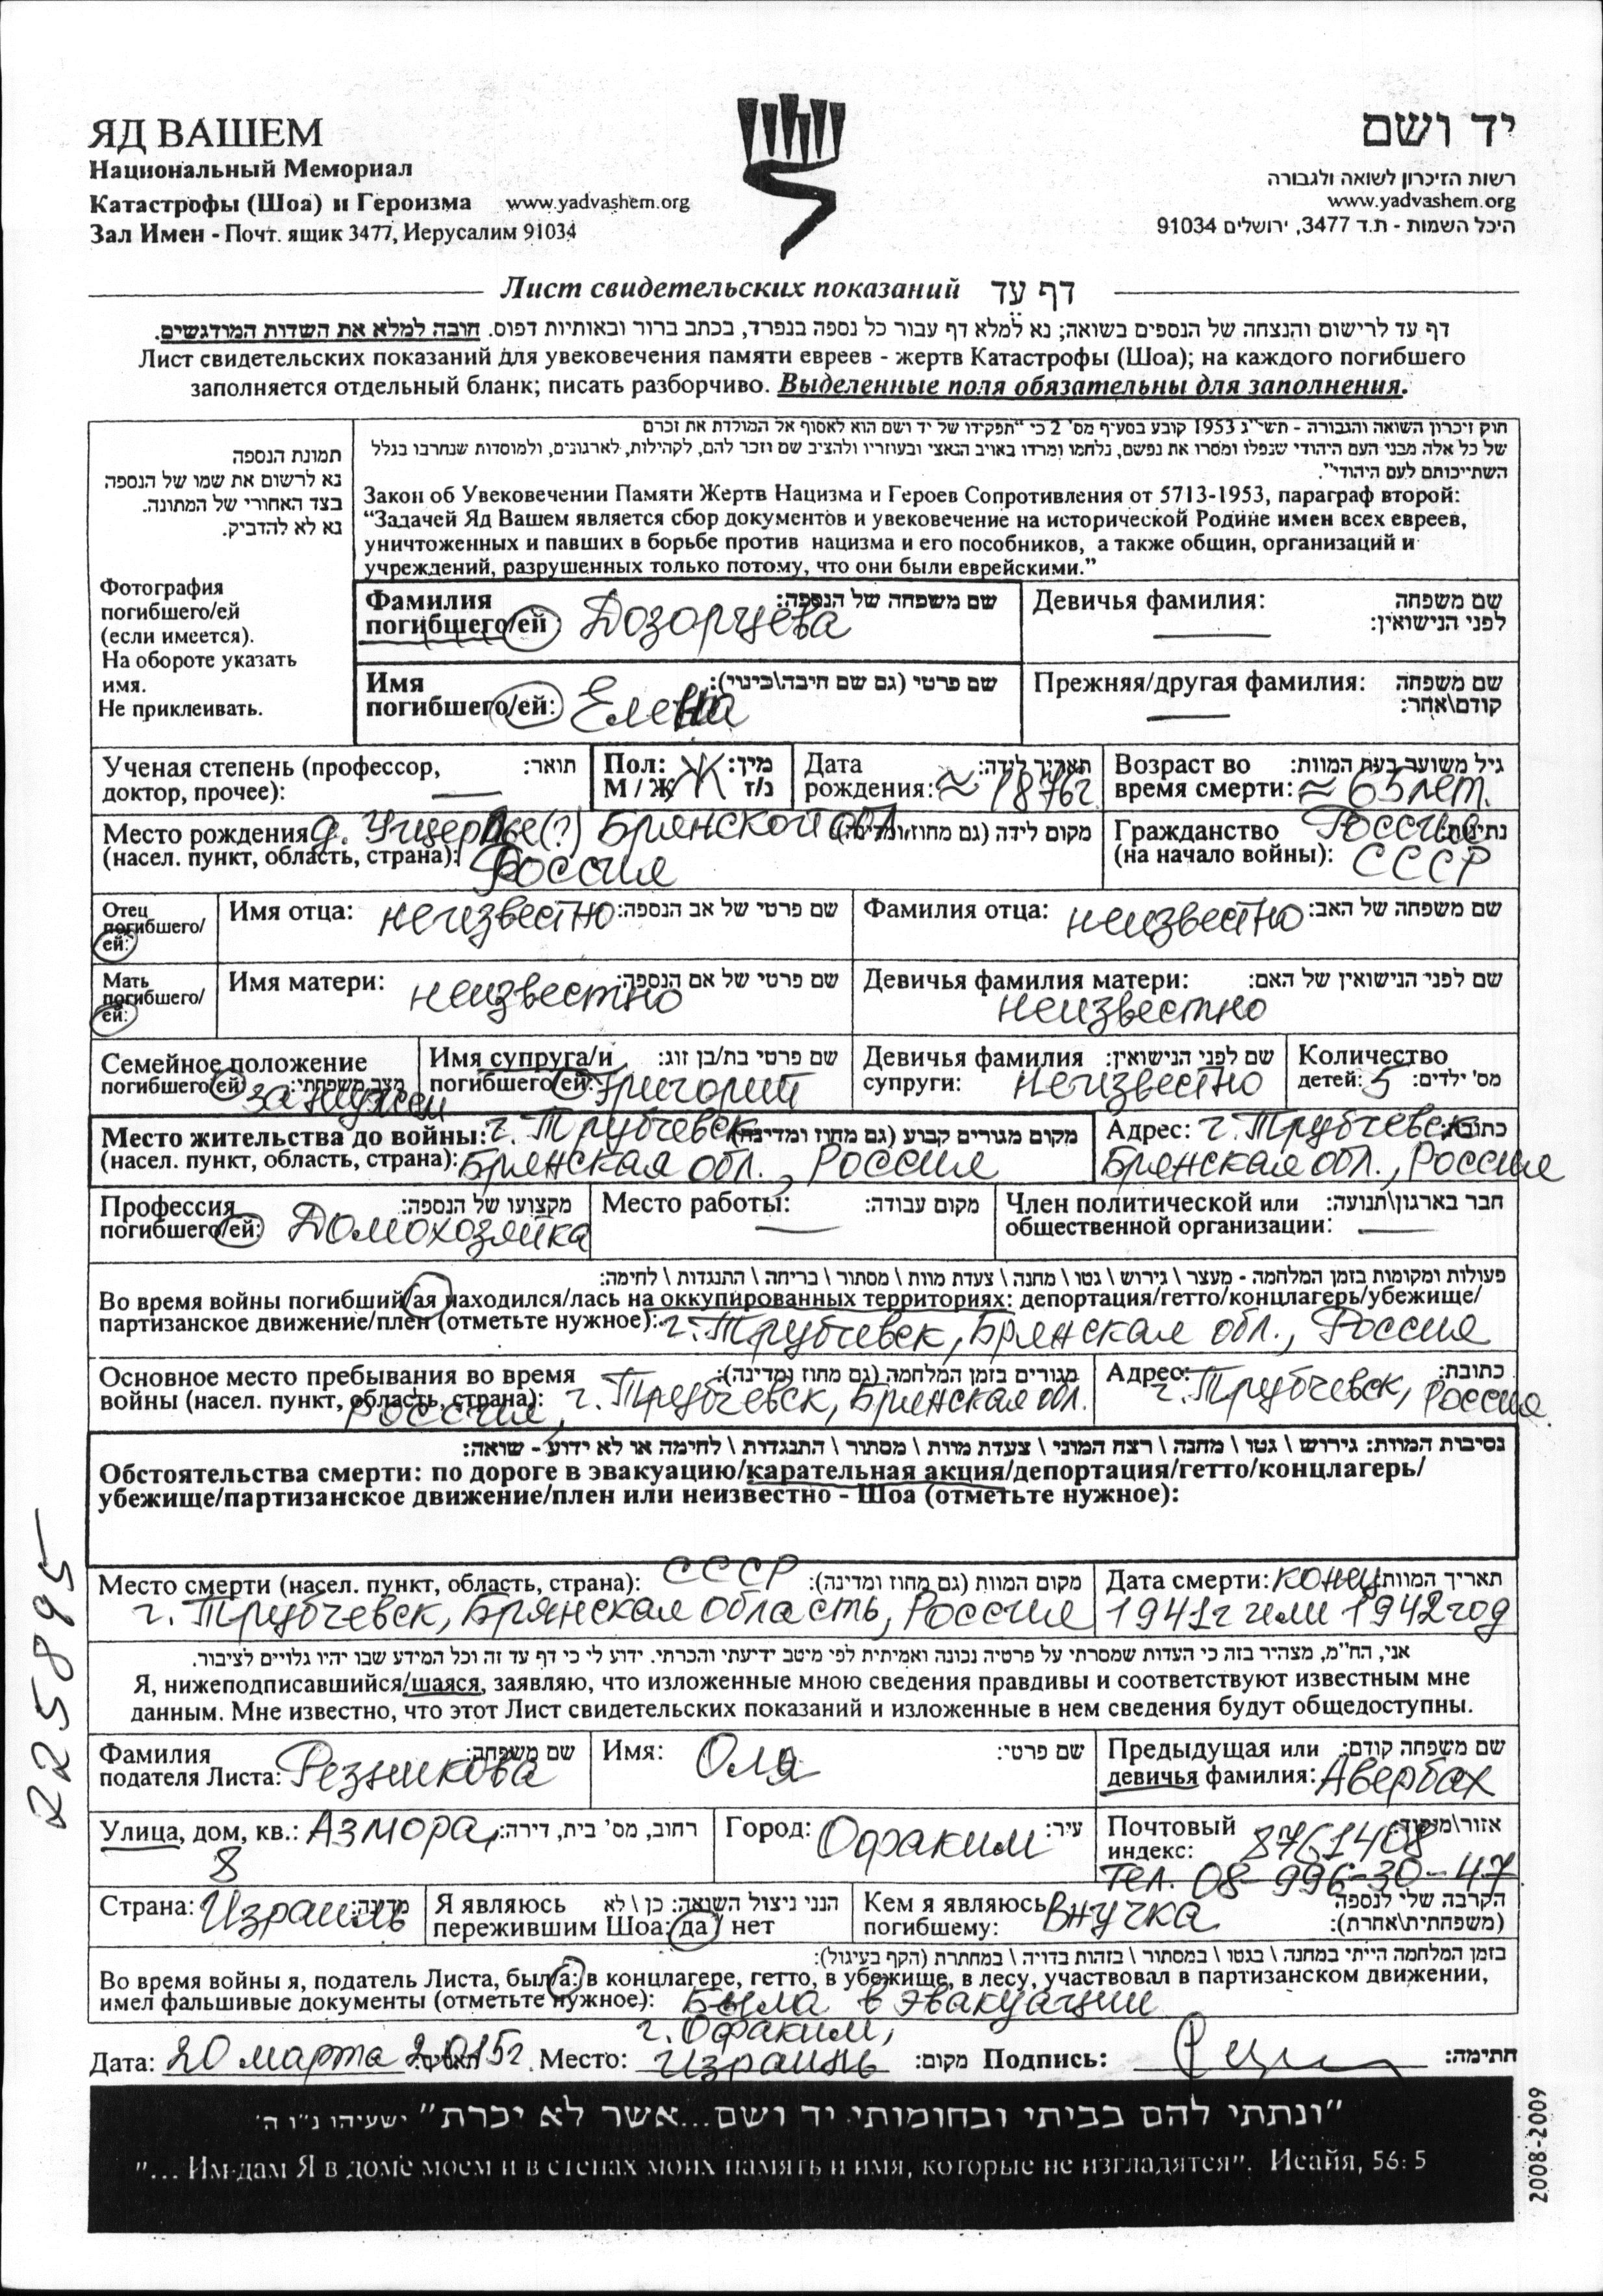 ЯД ВАШЕМ
Национальный Мемориал
Катастрофы (Шоа) и Героизма www.yadvashem.org
Зал Имен - Почт. ящик 3477, Иерусалим 91034
יד ושם
רשות הזיכרון לשואה ולגבורה
www.yadvashem.org
היכל השמות - ת.ד 3477, ירושלים 91034
Лист свидетельских показаний דף עד
דף עד לרישום והנצחה של הנספים בשואה; נא למלא דף עבור כל נספה בנפרד, בכתב ברור ובאותיות דפוס. חובה למלא את השדות המודגשים.
Лист свидетельских показаний для увековечения памяти евреев - жертв Катастрофы (Шоа); на каждого погибшего
заполняется отдельный бланк; писать разборчиво. Выделенные поля обязательны для заполнения.
תמונת הנספה
נא לרשום את שמו של הנספה
בצד האחורי של המתונה.
נא לא להדביק.
Фотография
погибшего/ей
(если имеется).
На обороте указать
имя.
Не приклеивать.
חוק זיכרון השואה והגבורה - תשי"ג 1953 קובע בסעיף מס' 2 כי "תפקידו של יד ושם הוא לאסוף אל המולדת את זכרם
של כל אלה מבני העם היהודי שנפלו ומסרו את נפשם, נלחמו ומרדו באויב הנאצי ובעוזריו ולהציב שם וזכר להם, לקהילות, לארגונים, ולמוסדות שנחרבו בגלל
השתייכותם לעם היהודי".
Закон об Увековечении Памяти Жертв Нацизма и Героев Сопротивления от 5713-1953, параграф второй:
“Задачей Яд Вашем является сбор документов и увековечение на исторической Родине имен всех евреев,
уничтоженных и павших в борьбе против нацизма и его пособников, а также общин, организаций и
учреждений, разрушенных только потому, что они были еврейскими.”
Фамилия погибшего/ей שם משפחה של הנספה: Дозорцева
Девичья фамилия: שם משפחה לפני הנישואין: —
Имя погибшего/ей: שם פרטי (גם שם חיבה\כינוי): Елена
Прежняя/другая фамилия: שם משפחה קודם\אחר: —
Ученая степень (профессор, доктор, прочее): תואר: —
Пол: М / Ж מין: ז/נ Ж
Дата рождения: תאריך לידה: ≈ 1876г
Возраст во время смерти: גיל משוער בעת המוות: ≈ 65 лет.
Место рождения (насел. пункт, область, страна): מקום לידה (גם מחוז ומדינה): д. (?) Брянской обл.,
Россия
Гражданство (на начало войны): נתינות: Россия
СССР
Отец погибшего/ей:
Имя отца: שם פרטי של אב הנספה: неизвестно
Фамилия отца: שם משפחה של האב: неизвестно
Мать погибшего/ей:
Имя матери: שם פרטי של אם הנספה: неизвестно
Девичья фамилия матери: שם לפני הנישואין של האם: неизвестно
Семейное положение погибшего/ей: מצב משפחתי: замужем
Имя супруга/и погибшего/ей: שם פרטי בת/בן זוג: Григорий
Девичья фамилия супруги: שם לפני הנישואין: неизвестно
Количество детей: מס' ילדים: 5
Место жительства до войны: (насел. пункт, область, страна): מקום מגורים קבוע (גם מחוז ומדינה): г. Трубчевск
Брянская обл., Россия
Адрес: כתובת: г. Трубчевск
Брянская обл., Россия
Профессия погибшего/ей: מקצועו של הנספה: Домохозяйка
Место работы: מקום עבודה: —
Член политической или общественной организации: חבר בארגון\תנועה: —
פעולות ומקומות בזמן המלחמה - מעצר \ גירוש \ גטו \ מחנה \ צעדת מוות \ מסתור \ בריחה \ התנגדות \ לחימה:
Во время войны погибший/ая находился/лась на оккупированных территориях: депортация/гетто/концлагерь/убежище/
партизанское движение/плен (отметьте нужное): г. Трубчевск, Брянская обл., Россия
Основное место пребывания во время войны (насел. пункт, область, страна): מגורים בזמן המלחמה (גם מחוז ומדינה): г. Трубчевск, Брянская обл.
Россия,
Адрес: כתובת: г. Трубчевск, Россия.
נסיבות המוות: גירוש \ גטו \ מחנה \ רצח המוני \ צעדת מוות \ מסתור \ התנגדות \ לחימה או לא ידוע - שואה:
Обстоятельства смерти: по дороге в эвакуацию/карательная акция/депортация/гетто/концлагерь/
убежище/партизанское движение/плен или неизвестно - Шоа (отметьте нужное):
Место смерти (насел. пункт, область, страна): מקום המוות (גם מחוז ומדינה): СССР
г. Трубчевск, Брянская область, Россия
Дата смерти: תאריך המוות: конец
1941г или 1942 год
אני, הח"מ, מצהיר בזה כי העדות שמסרתי על פרטיה נכונה ואמיתית לפי מיטב ידיעתי והכרתי. ידוע לי כי דף עד זה וכל המידע שבו יהיו גלויים לציבור.
Я, нижеподписавшийся/шаяся, заявляю, что изложенные мною сведения правдивы и соответствуют известным мне
данным. Мне известно, что этот Лист свидетельских показаний и изложенные в нем сведения будут общедоступны.
Фамилия подателя Листа: שם משפחה: Резникова
Имя: שם פרטי: Оля
Предыдущая или девичья фамилия: שם משפחה קודם: Авербах
Улица, дом, кв.: רחוב, מס' בית, דירה: Азмора,
8
Город: עיר: Офаким
Почтовый индекс: אזור\מיקוד: 8761408
Тел. 08-996-30-47
Страна: מדינה: Израиль
Я являюсь пережившим Шоа: да / нет הנני ניצול השואה: כן \ לא
Кем я являюсь погибшему: הקרבה שלי לנספה (משפחתית\אחרת): Внучка
בזמן המלחמה הייתי במחנה \ בגטו \ במסתור \ בזהות בדויה \ במחתרת (הקף בעיגול):
Во время войны я, податель Листа, был/а: в концлагере, гетто, в убежище, в лесу, участвовал в партизанском движении,
имел фальшивые документы (отметьте нужное): Была в эвакуации
Дата: תאריך: 20 марта 2015г. Место: מקום: г. Офаким,
Израиль
Подпись: חתימה:
"ונתתי להם בביתי ובחומותי יד ושם...אשר לא יכרת" ישעיהו נ"ו ה'
"... Им дам Я в доме моем и в стенах моих память и имя, которые не изгладятся". Исайя, 56: 5
2008-2009
225895